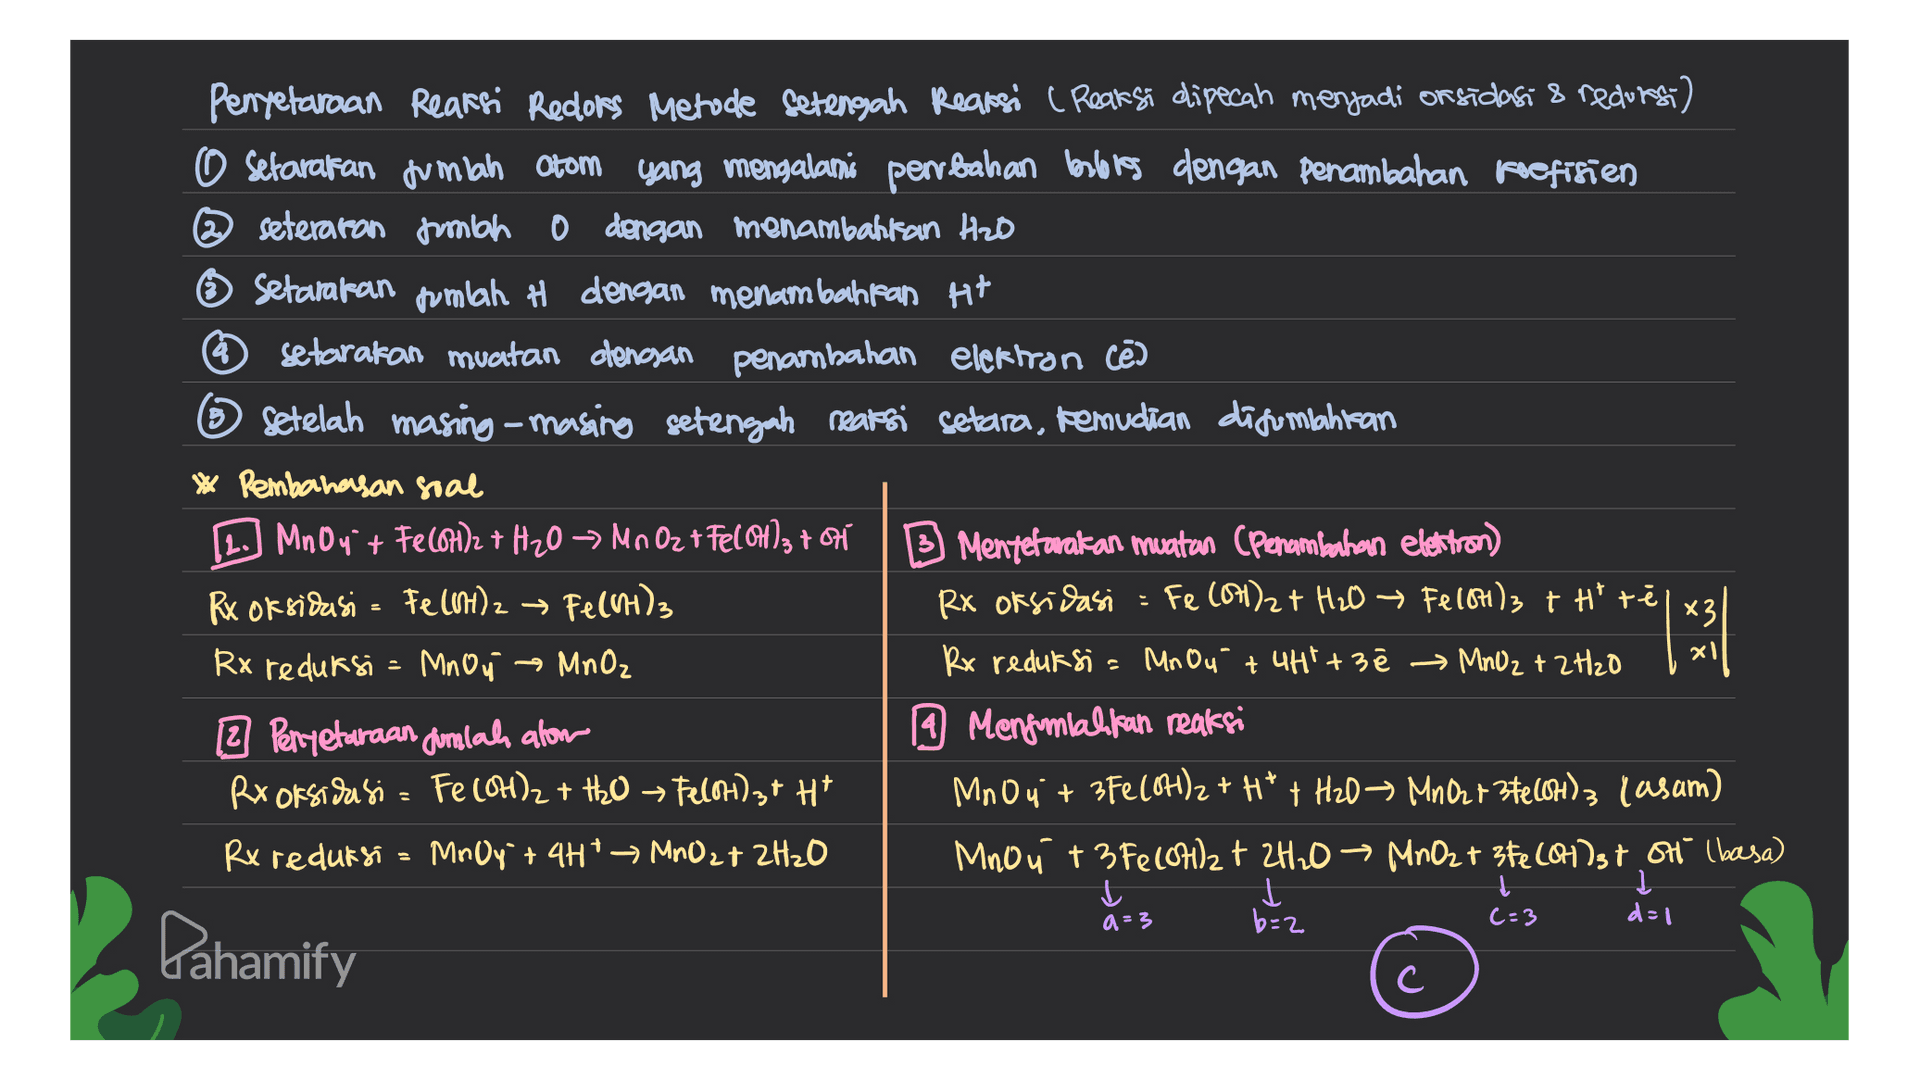 Penyetaraan Reaksi Redoks Metode Setengah Reaksi (Reaksi dipecah menjadi oksidasi & reduksi)
① Setarakan jumlah atom yang mengalami perubahan biloks dengan penambahan koefisien
② seterakan jumlah O dengan menambahkan H₂O
③ Setarakan jumlah H dengan menambahkan H⁺
④ setarakan muatan dengan penambahan elektron (ē)
⑤ Setelah masing-masing setengah reaksi setara, kemudian dijumlahkan
* Pembahasan soal
1. MnO₄⁻ + Fe(OH)₂ + H₂O → MnO₂ + Fe(OH)₃ + OH⁻
Rx oksidasi = Fe(OH)₂ → Fe(OH)₃
Rx reduksi = MnO₄⁻ → MnO₂
2 Penyetaraan jumlah atom
Rx oksidasi = Fe(OH)₂ + H₂O → Fe(OH)₃ + H⁺
Rx reduksi = MnO₄⁻ + 4H⁺ → MnO₂ + 2H₂O
3 Menyetarakan muatan (Penambahan elektron)
Rx oksidasi = Fe(OH)₂ + H₂O → Fe(OH)₃ + H⁺ + ē | x3 |
Rx reduksi = MnO₄⁻ + 4H⁺ + 3ē → MnO₂ + 2H₂O | x1 |
4 Menjumlahkan reaksi
MnO₄⁻ + 3Fe(OH)₂ + H⁺ + H₂O → MnO₂ + 3Fe(OH)₃ (asam)
MnO₄⁻ + 3Fe(OH)₂ + 2H₂O → MnO₂ + 3Fe(OH)₃ + OH⁻ (basa)
↓ ↓ ↓ ↓
a=3 b=2 c=3 d=1
C
Pahamify